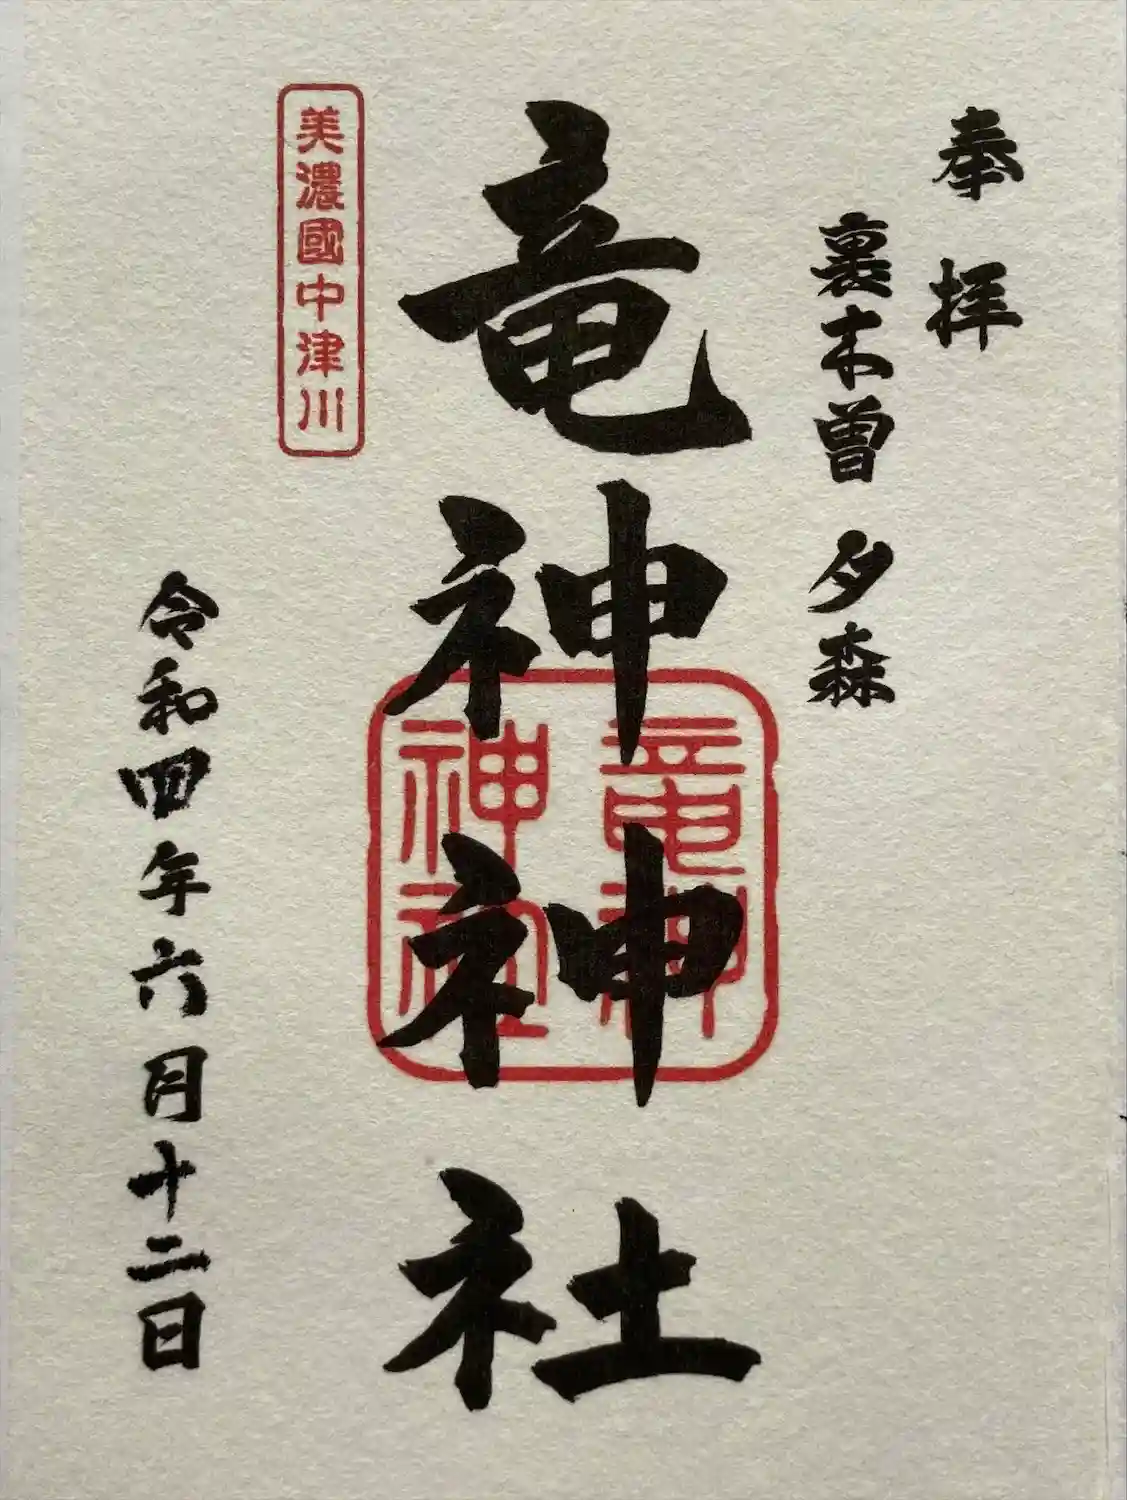 奉拝
裏木曽 夕森
竜神神社
竜神
神社
美濃國中津川
令和四年六月十二日